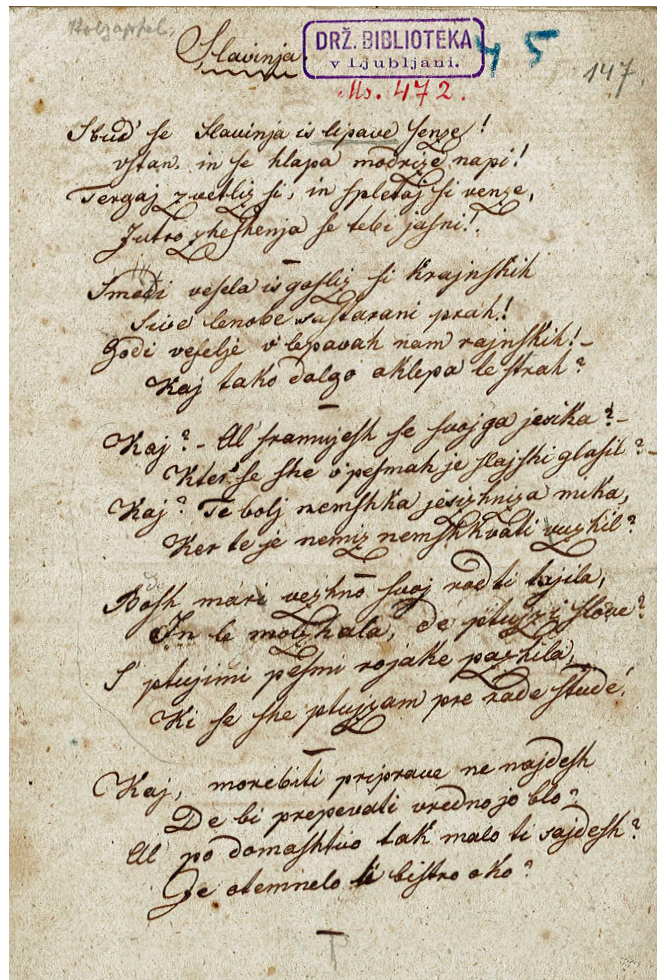 Holzapfel.
Slavinja
DRŽ. BIBLIOTEKA
v Ljubljani.
45
147.
Ms. 472.
Sbud' se Slavinja is lipave senze!
vstan. in se hlapa modrize napi!
Tergaj zvetliz si, in spletaj si venze,
Jutro zheshenja se tebi jasni!
Smedi vesela is gosliz si Krajnskih
Sive lenobe sastarani prah!
Godi veselje v' lepavah nam rajnskih! –
Kaj tako dolgo oklepa te strah?
Kaj? – Al' sramujesh se svojga jesika? –
Kter' se she v' pesmah je slajshi glasil? –
Kaj? Te bolj nemshka jesizhniza mika,
Ker te je nemiz nemshkvati vuzhil?
Bosh mari vezhno svoj rod ti tajila,
In le molzhala, de ptujzi slove?
S' ptujimi pesmi rojake pazhila,
Ki se she ptujzam pre rade stude!
Kaj, morebiti priprave ne najdesh
De bi prepevati vredno jo blo?
Al po domashtvo tak malo ti sajdesh?
Je otemnelo ti bistro oko?